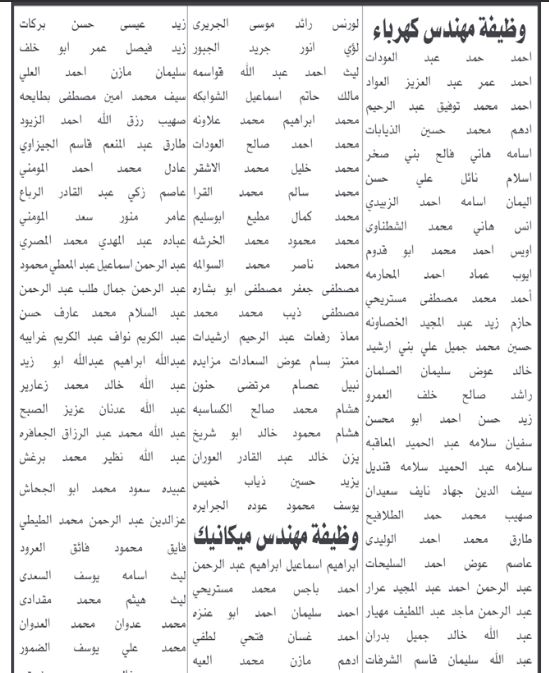 وظيفة مهندس كهرباء
احمد حمد عبد العودات
احمد عمر عبد العزيز العواد
احمد محمد توفيق عبد الرحيم
ادهم محمد حسين الذيابات
اسامه هاني فالح بني صخر
اسلام نائل علي حسن
اليمان اسامه احمد الزبيدي
انس هاني محمد الشطناوى
اويس احمد محمد ابو قدوم
ايوب عماد احمد المحارمه
أحمد محمد مصطفى مستريحي
حازم زيد عبد المجيد الخصاونه
حسين محمد جميل علي بني ارشيد
خالد عوض سليمان الصلمان
راشد صالح خلف العمرو
زيد حسن احمد ابو محسن
سفيان سلامه عبد الحميد المعاقبه
سلامه عبد الحميد سلامه قنديل
سيف الدين جهاد نايف سعيدان
صهيب محمد حمد الطلافيح
طارق محمد احمد الوليدي
عاصم عوض احمد السليحات
عبد الرحمن احمد عبد المجيد عرار
عبد الرحمن ماجد عبد اللطيف مهيار
عبد الله خالد جميل بدران
عبد الله سليمان قاسم الشرفات
لورنس رائد موسى الجريرى
لؤي انور جريد الجبور
ليث احمد عبد الله قواسمه
مالك حاتم اسماعيل الشوابكه
محمد ابراهيم محمد علاونه
محمد احمد صالح العودات
محمد خليل محمد الاشقر
محمد سالم محمد القرا
محمد كمال مطيع ابوسليم
محمد محمود محمد الخرشه
محمد ناصر محمد السوالمه
مصطفى جعفر مصطفى ابو بشاره
مصطفى ذيب محمد محمد
معاذ رفعات عبد الرحيم ارشيدات
معتز بسام عوض السعادات مزايده
نبيل عصام مرتضى حنون
هشام محمد صالح الكساسبه
هشام محمود خالد ابو شريخ
يزن خالد عبد القادر العوران
يزيد حسين ذياب خميس
يوسف محمود عوده الجرايره
وظيفة مهندس ميكانيك
ابراهيم اسماعيل ابراهيم عبد الرحمن
احمد باجس محمد مستريحي
احمد سليمان احمد ابو عنزه
احمد غسان فتحي لطفي
ادهم مازن محمد العيه
زيد عيسى حسن بركات
زيد فيصل عمر ابو خلف
سليمان مازن احمد العلي
سيف محمد امين مصطفى بطايحه
صهيب رزق الله احمد الزيود
طارق عبد المنعم قاسم الجيزاوي
عادل محمد احمد المومني
عاصم زكي عبد القادر الرباع
عامر منور سعد المومني
عباده عبد المهدي محمد المصري
عبد الرحمن اسماعيل عبد المعطي محمود
عبد الرحمن جمال طلب عبد الرحمن
عبد السلام محمد عارف حسن
عبد الكريم نواف عبد الكريم غرايبه
عبدالله ابراهيم عبدالله ابو زيد
عبد الله خالد محمد زعارير
عبد الله عدنان عزيز الصبح
عبد الله محمد عبد الرزاق الجعافره
عبد الله نظير محمد برغش
عبيده سعود محمد ابو الجحاش
عزالدين عبد الرحمن محمد الطيطي
فايق محمود فائق العرود
ليث اسامه يوسف السعدى
ليث هيثم محمد مقدادى
محمد عدوان محمد العدوان
محمد علي يوسف الضمور